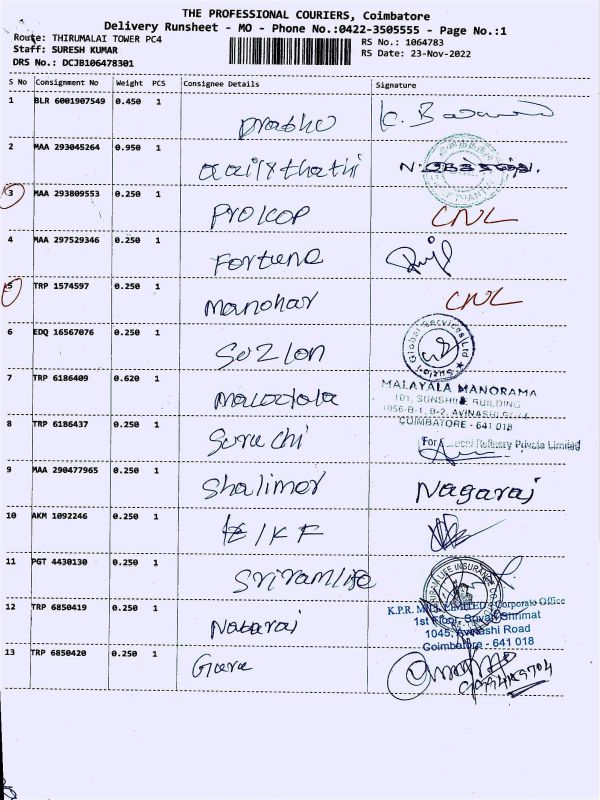 THE PROFESSIONAL COURIERS, Coimbatore
Delivery Runsheet - MO - Phone No.:0422-3505555 - Page No.:1
Route: THIRUMALAI TOWER PC4
RS No.: 1064783
Staff: SURESH KUMAR
RS Date: 23-Nov-2022
DRS No.: DCJB106478301
S No Consignment No Weight PCS Consignee Details Signature
1 BLR 6001907549 0.450 1 Prabhu
2 MAA 293045264 0.950 1
3 MAA 293809553 0.250 1 PROKOP CNL
4 MAA 297529346 0.250 1 Fortune
5 TRP 1574597 0.250 1 Manohar CNL
6 EDQ 16567076 0.250 1 Suzlon
Global Services Ltd
Suzlon
7 TRP 6186409 0.620 1
MALAYALA MANORAMA
101, SUNSHINE BUILDING
1056-B-1, B-2, AVINASHI
COIMBATORE - 641 018
8 TRP 6186437 0.250 1 Suruchi
For Refinery Private Limited
9 MAA 290477965 0.250 1 Shalimar Nagaraj
10 AKM 1092246 0.250 1 IKF
11 PGT 4430130 0.250 1 Sriramlife
SRIRAM LIFE INSURANCE CO
12 TRP 6850419 0.250 1 Nataraj
K.P.R. MILL LIMITED - Corporate Office
1st Floor, Srivari Shrimat
1045, Avinashi Road
Coimbatore - 641 018
13 TRP 6850420 0.250 1